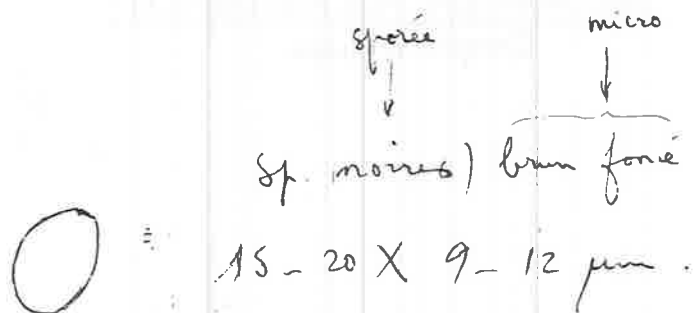 sporée micro
Sp. noires) brun foncé
15 - 20 X 9 - 12 µm.